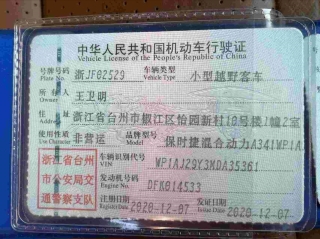 中华人民共和国机动车行驶证
Vehicle License of the People's Republic of China
号牌号码 Plate No. 浙JF02529 车辆类型 Vehicle Type 小型越野客车
所有人 Owner 王卫明
住址 Address 浙江省台州市椒江区怡园新村18号楼1幢2室
使用性质 Use Character 非营运 品牌型号 Model 保时捷混合动力A341WP1A
浙江省台州市公安局交通警察支队
车辆识别代号 VIN WP1AJ29Y3MDA35361
发动机号码 Engine No. DFK014533
注册日期 Register Date 2020-12-07 发证日期 Issue Date 2020-12-07